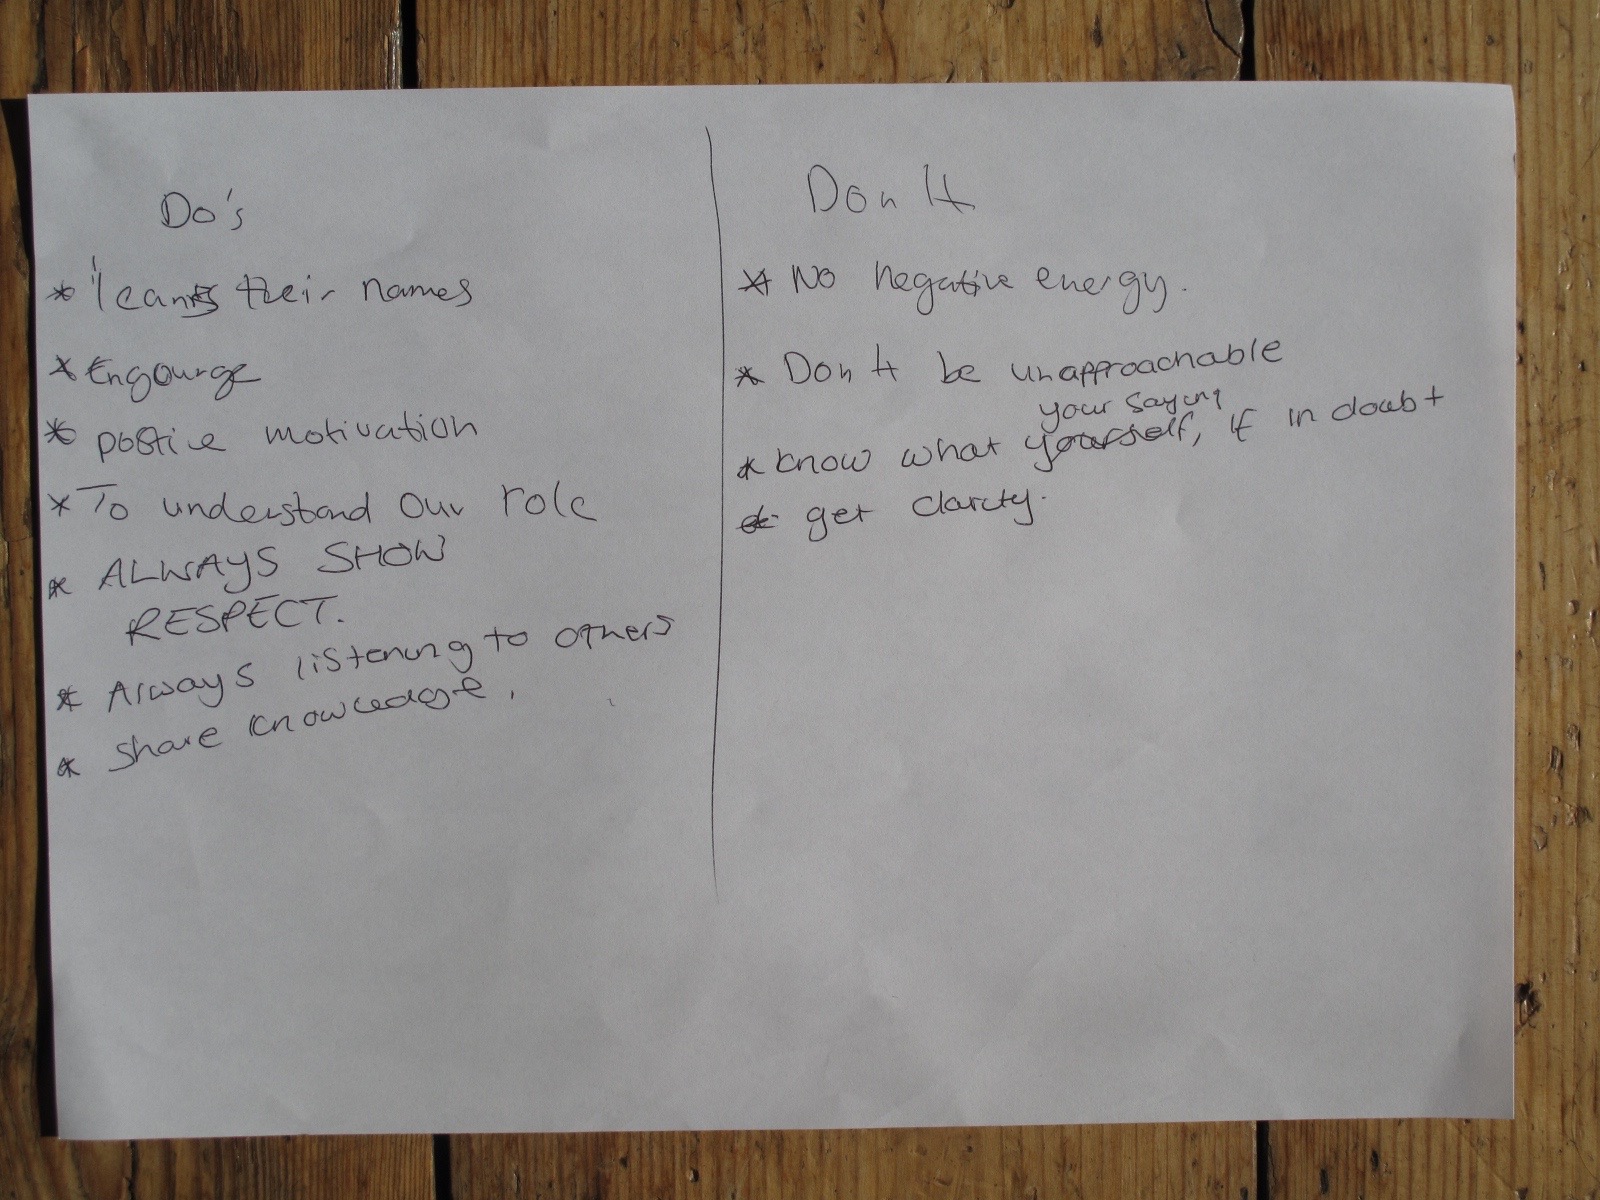 Do's
* learn their names
* Engourge
* postive motivation
* To understand our role
* ALWAYS SHOW
RESPECT.
* Always listening to others
* share knowledge.
Don't
* No negative energy.
* Don't be unapproachable
your saying
* know what yourself, if in doubt
* get clarity.